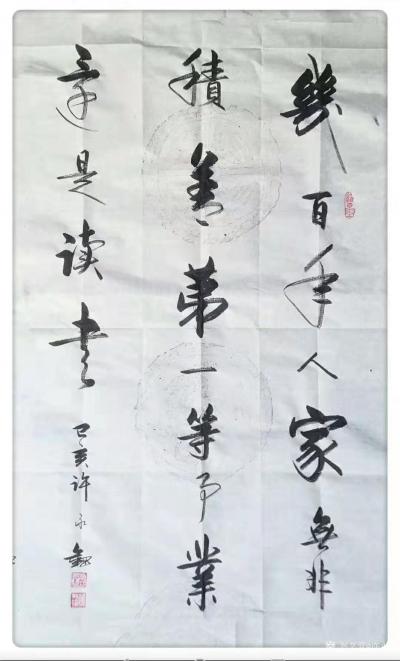 幾百年人家無非
積善第一等事業
還是读書
己亥许永